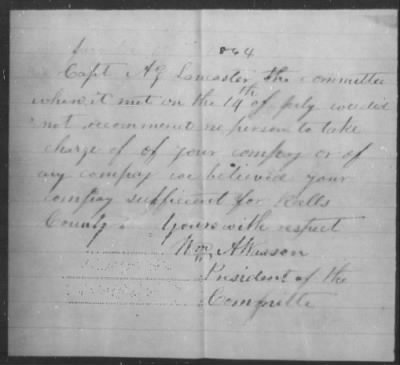 864
Capt A G Lancaster the committee
when it met on the 14th of July we did
not recommend no person to take
charge of of your compay or of
any compay we believed your
compay sufficient for Ralls
County Yours with respect
Wm
President of the
Committe